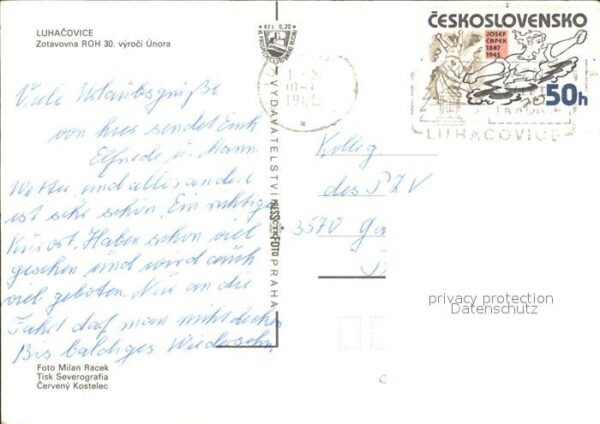 LUHAČOVICE
Zotavovna ROH 30. výročí Února
Viele Urlaubsgrüße
von hier sendet Euch
Elfriede u. Mann
Wetter und alles andere
ist sehr schön. Ein richtiger
Kurort. Haben schon viel
gesehen und wird auch
viel geboten. Nur an die
Fahrt darf man nicht denken
Bis baldiges Wiedersehn,
Foto Milan Racek
Tisk Severografia
Červený Kostelec
Kčs 0,20
VYDAVATELSTVÍ PRESSFOTO PRAHA
ČTK
ČESKOSLOVENSKO
JOSEF
ČAPEK
1887
1945
50h
LUHAČOVICE
Kolleg
des PZV
3570 Ga
privacy protection
Datenschutz